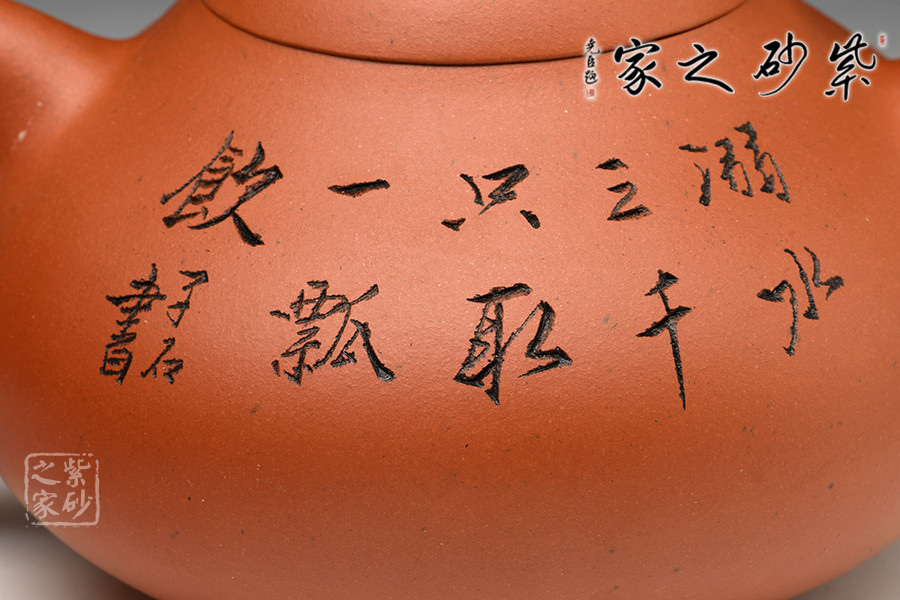 紫砂之家
溺水
三千
只取
一瓢
飲
子石
書
紫砂
之家